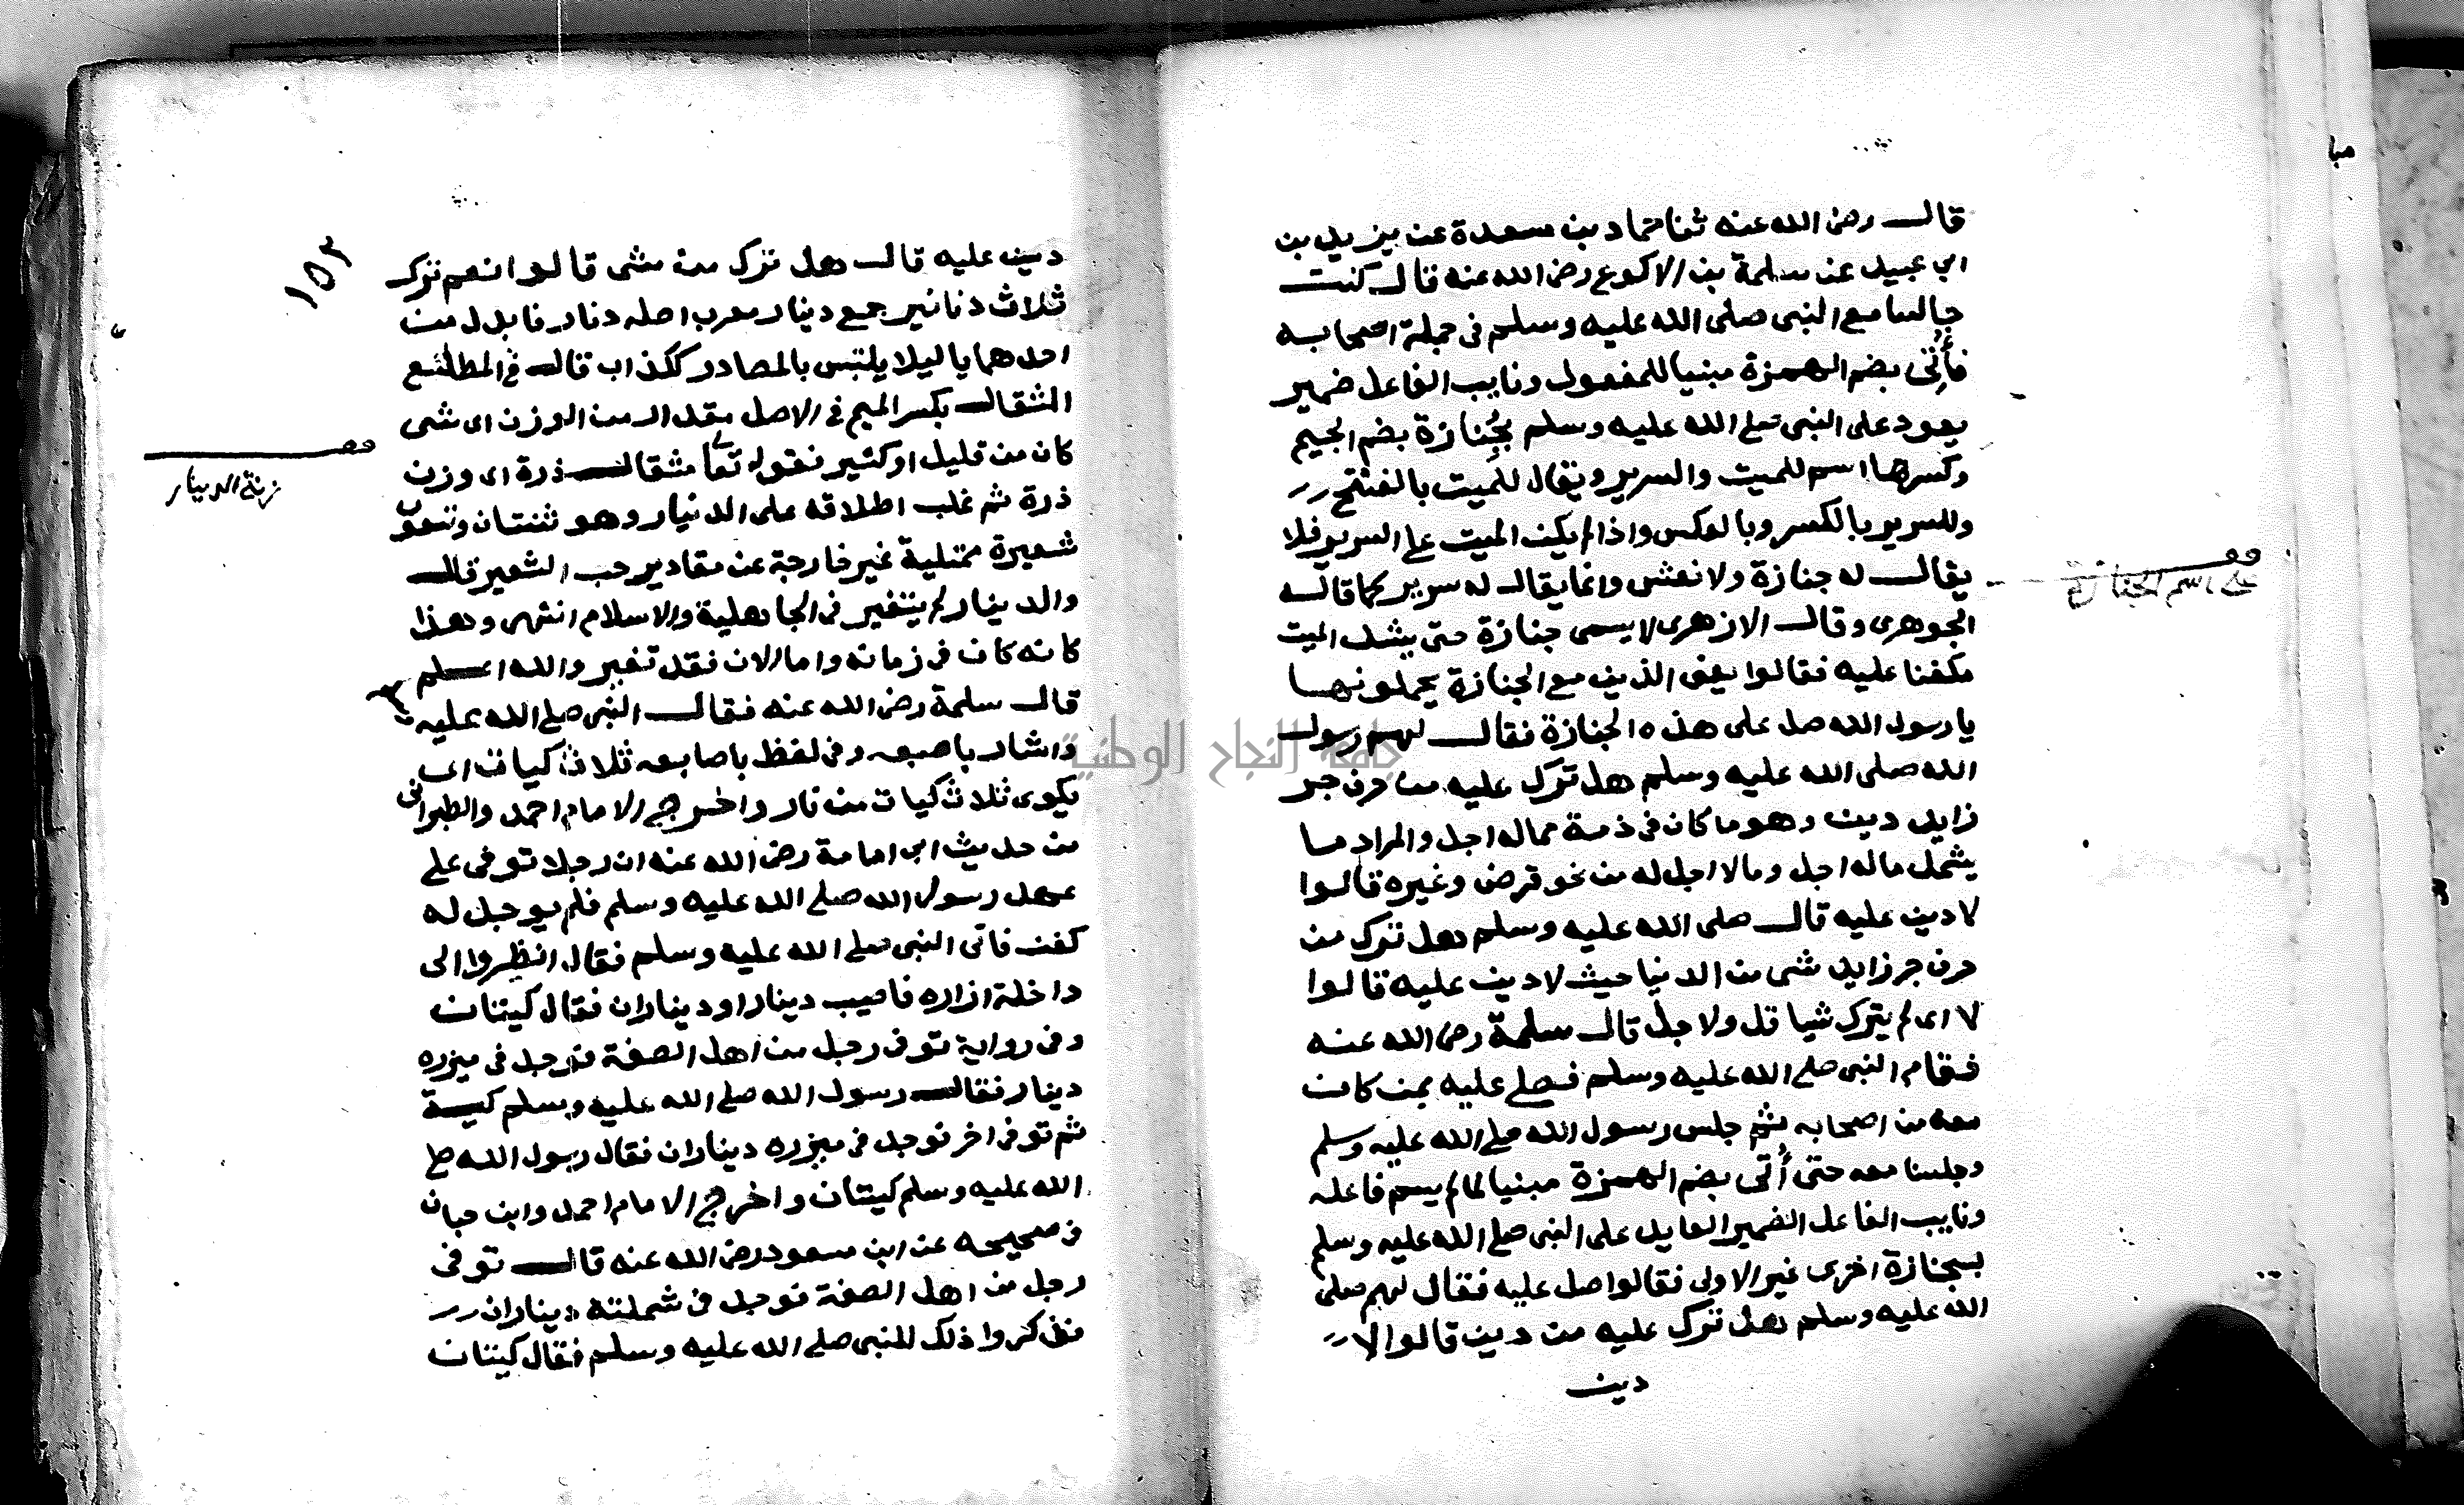 قال رضى الله عنه ثنا حماد بن مسعدة عن يزيد بن
ابى عبيد عن سلمة بن الاكوع رضى الله عنه قال كنت
جالسا مع النبى صلى الله عليه وسلم فى جملة اصحابه
فأُتِى بضم الهمزة مبنيا للمفعول ونايب الفاعل ضمير
يعود على النبى صلى الله عليه وسلم بجُنِازة بضم الجيم
وكسرها اسم للميت والسرير ويقال للميت بالفتح
وللسرير بالكسر وبالعكس واذا لم يكن الميت على السرير فلا
يقال له جنازة ولا نعش وانما يقال له سرير كما قاله
الجوهرى وقال الازهرى لا يسمى جنازة حتى يشد الميت
مكفنا عليه فقالوا يعنى الذين مع الجنازة يحملونها
يا رسول الله صل على هذه الجنازة فقال لهم رسول
الله صلى الله عليه وسلم هل ترك عليه من حرف جر
زايد دين وهو ما كان فى ذمة مما له اجل والمراد ما
يشمل ما له اجل وما لا اجل له من نحو قرض وغيره قالوا
لا دين عليه قال صلى الله عليه وسلم هل ترك من
حرف جر زايد شى من الدنيا حيث لا دين عليه قالوا
لا اى لم يترك شيا قل ولا جل قال سلمة رضى الله عنه
فقام النبى صلى الله عليه وسلم فصلى عليه بمن كان
معه من اصحابه ثم جلس رسول الله صلى الله عليه وسلم
وجلسنا معه حتى أُتى بضم الهمزة مبنيا لما لم يسم فاعله
ونايب الفاعل الضمير العايد على النبى صلى الله عليه وسلم
بجنازة اخرى غير الاولى فقالوا صل عليه فقال لهم صلى
الله عليه وسلم هل ترك عليه من دين قالوا لا
دين
على اسم الجنازة
١٥٣
دين عليه قال هل ترك من شى قالوا نعم ترك
ثلاث دنانير جمع دينار معرب اصله دنار فابدل من
احدهما يا ليلا يلتبس بالمصادر ككذاب قال فى المطلع
المثقال بكسر الميم فى الاصل مقدار من الوزن اى شى
كان من قليل او كثير فقوله تعا مثقال ذرة اى وزن
ذرة ثم غلب اطلاقه على الدنيار وهو ثنتان وسبعون
شعيرة ممتلية غير خارجة عن مقادير حب الشعير قال
والدينار لم يتغير فى الجاهلية والاسلام انتهى وهذا
كانه كان فى زمانه واما الان فقد تغير والله اعلم
قال سلمة رضى الله عنه فقال النبى صلى الله عليه
واشار باصبعه وفى لفظ باصابعه ثلاث كيات اى
يكوى ثلاث كيات من نار واخرج الامام احمد والطبرانى
من حديث ابى امامة رضى الله عنه ان رجلا توفى على
عهد رسول الله صلى الله عليه وسلم فلم يوجد له
كفن فاتى النبى صلى الله عليه وسلم فقال انظروا الى
داخلة ازاره فاصيب دينار او ديناران فقال كيتان
وفى رواية توفى رجل من اهل الصفة فوجد فى ميزره
دينار فقال رسول الله صلى الله عليه وسلم كية
ثم توفى اخر فوجد فى ميزره ديناران فقال رسول الله صلى
الله عليه وسلم كيتان واخرج الامام احمد وابن حبان
فى صحيحه عن ابن مسعود رضى الله عنه قال توفى
رجل من اهل الصفة فوجد فى شملته ديناران
فذكروا ذلك للنبى صلى الله عليه وسلم فقال كيتان
زنة الدينار
جامعة النجاح الوطنية